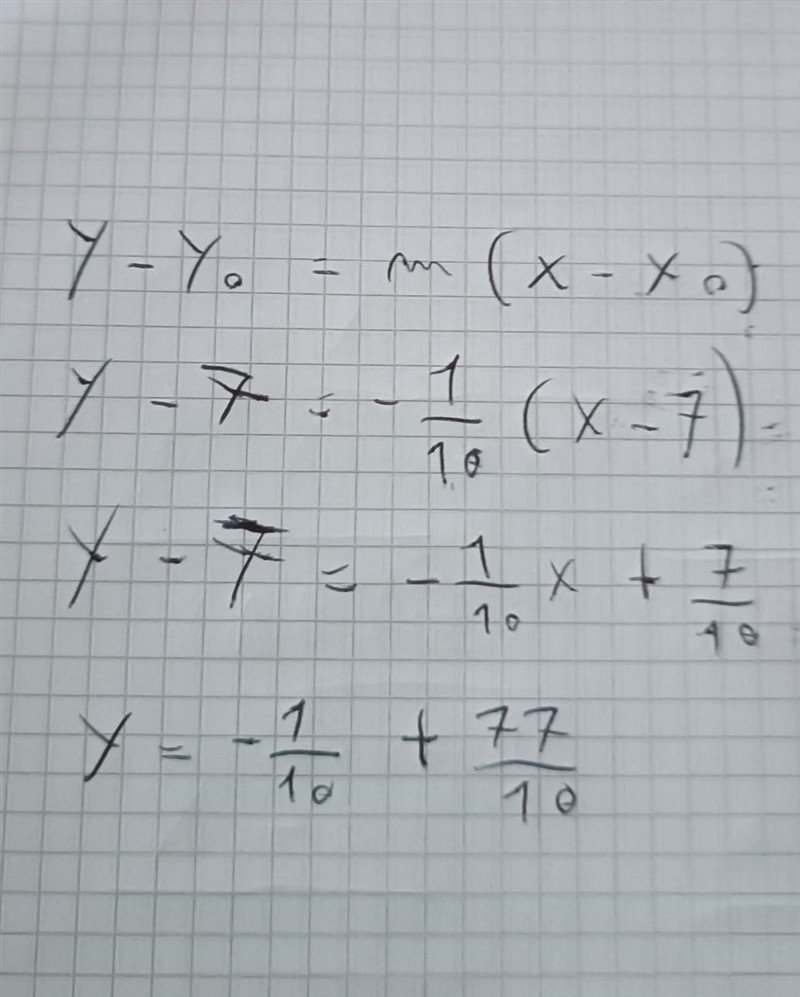 y - y₀ = m (x - x₀)
y - 7 = - 1/10 (x - 7) =
y - 7 = - 1/10 x + 7/10
y = - 1/10 + 77/10